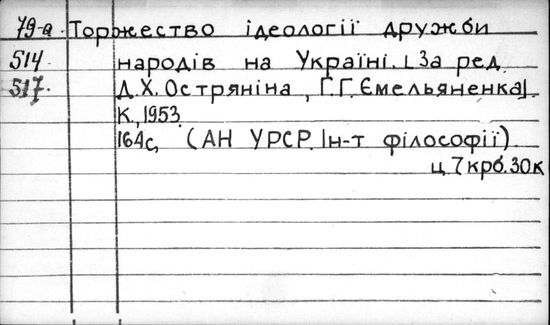 79-а Торжество ідеології дружби
514 народів на Україні. [За ред.
517. Д.Х. Остряніна, Г.Г. Ємельяненка].
К., 1953.
164с. (АН УРСР. Ін-т філософії).
ц. 7 крб. 30к